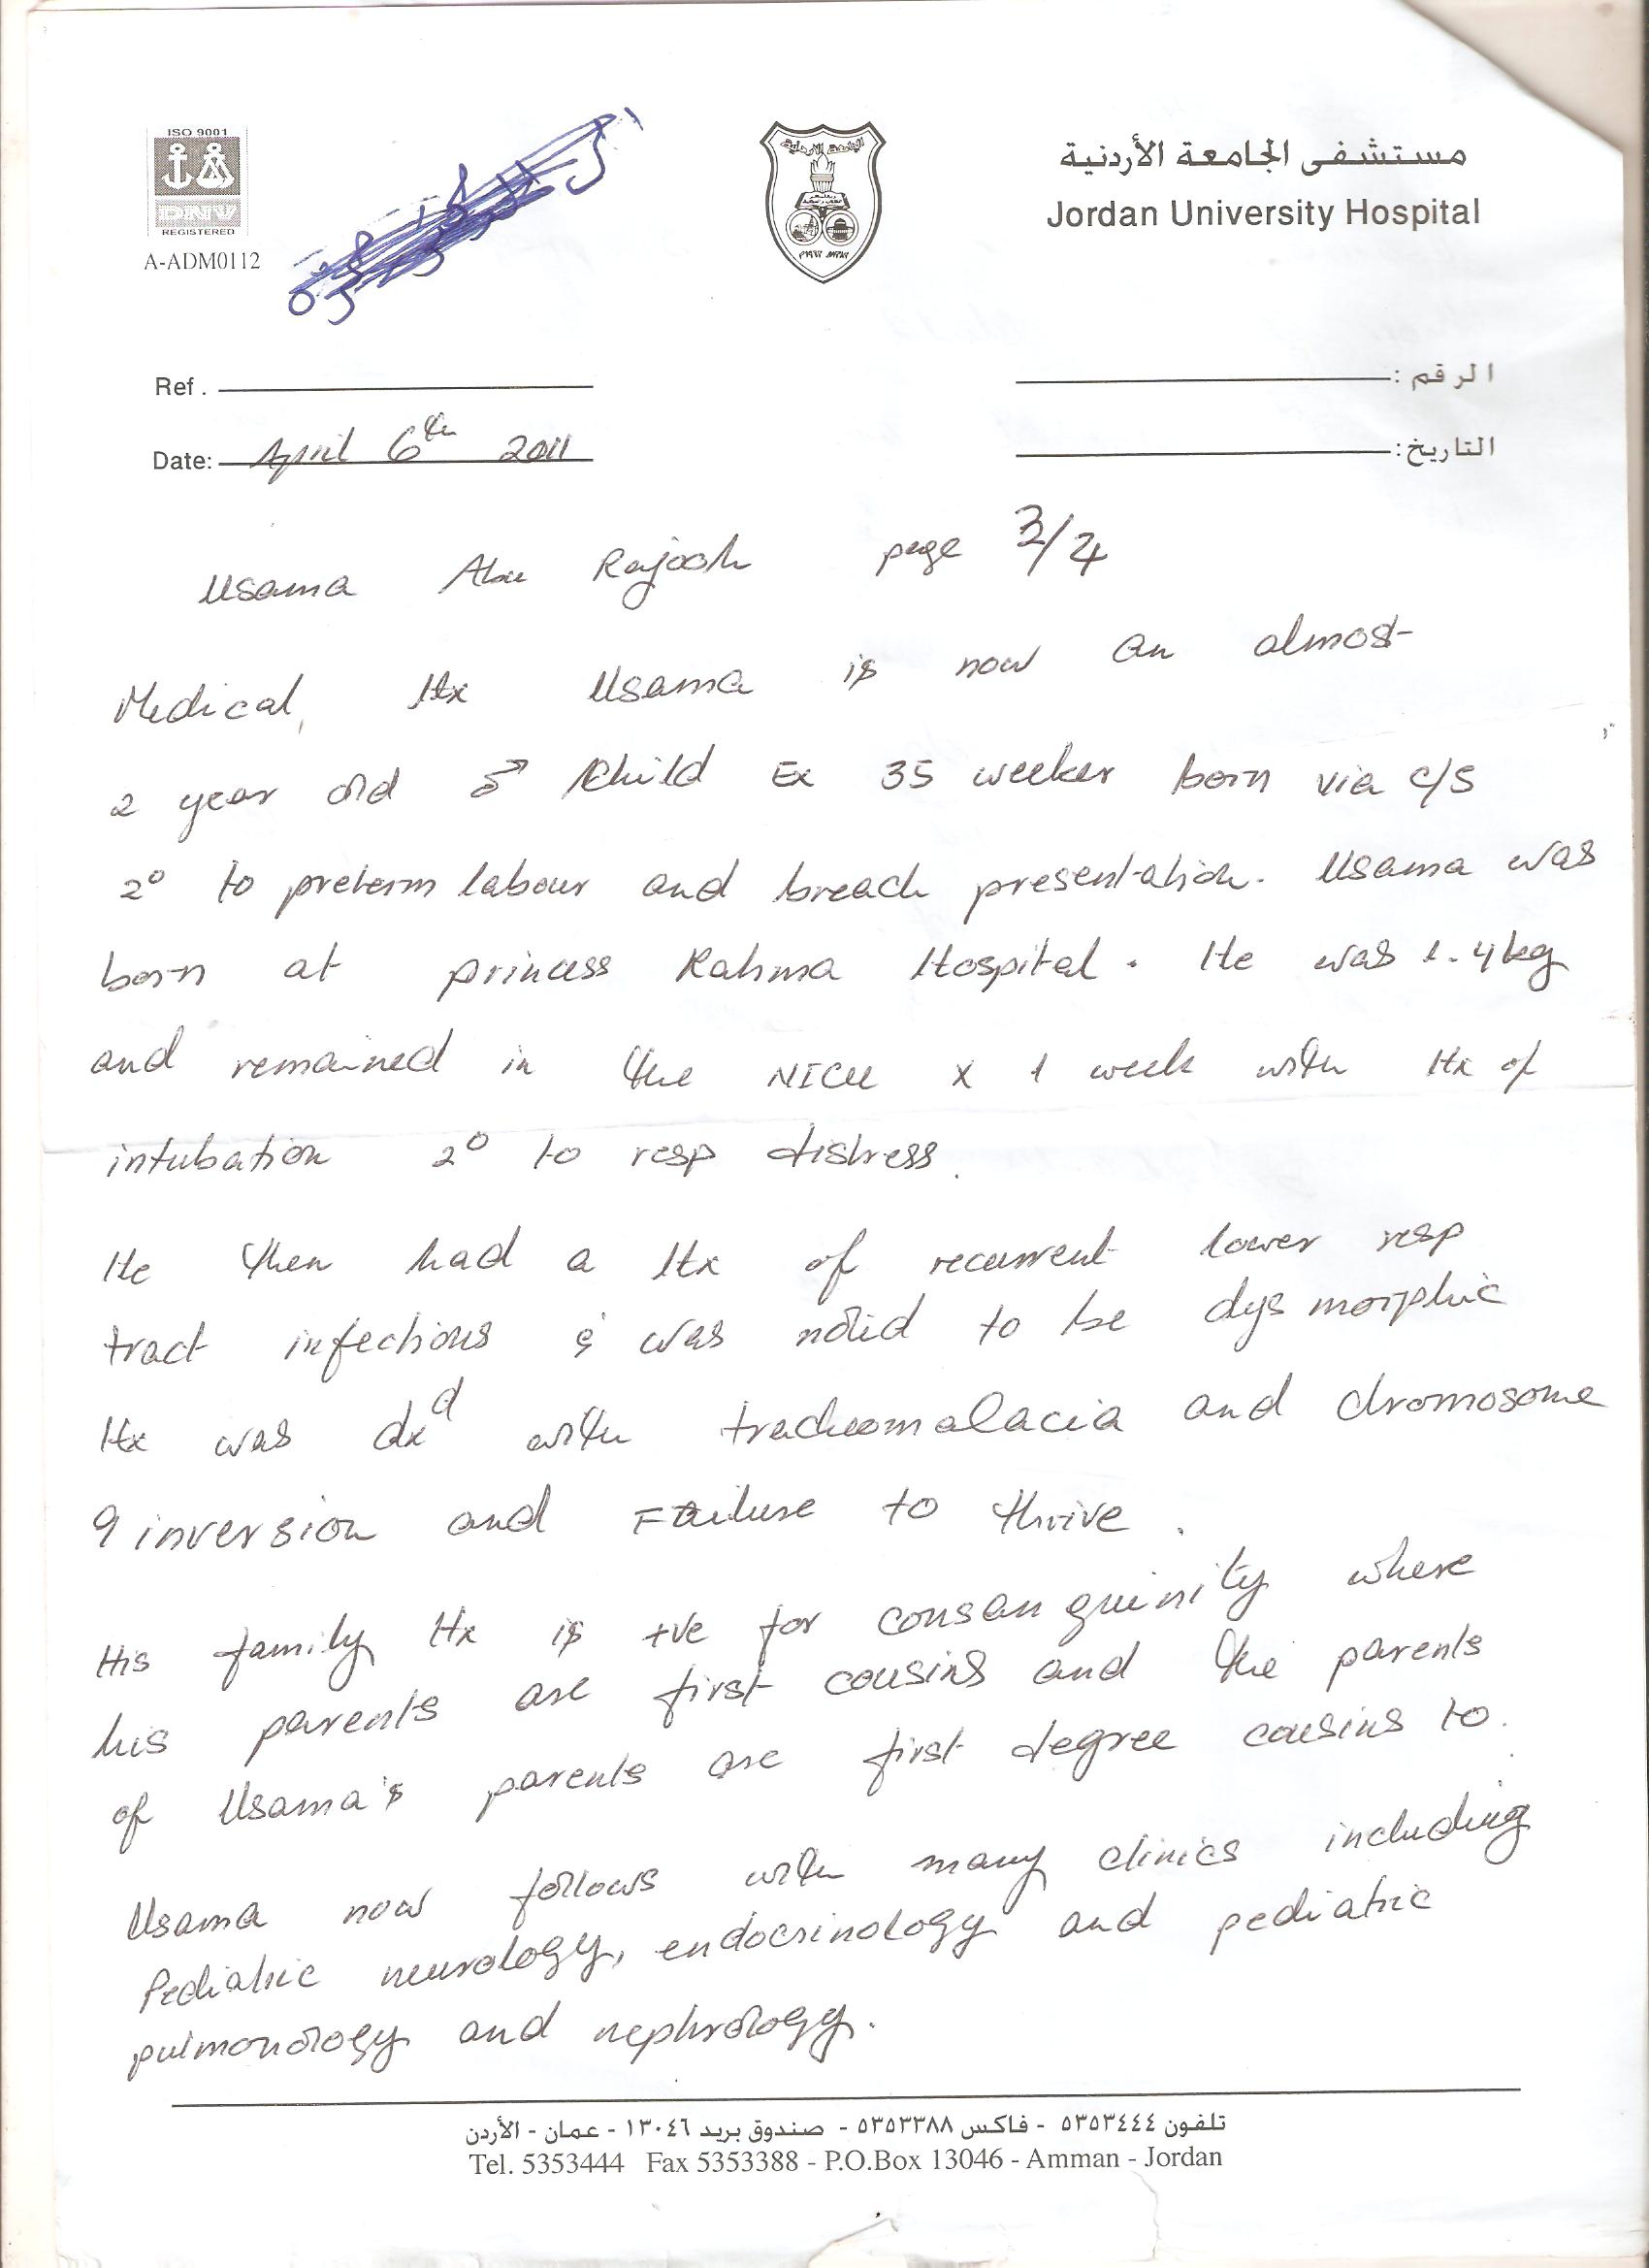 ISO 9001
DNV
REGISTERED
A-ADM0112
مستشفى الجامعة الأردنية
Jordan University Hospital
Ref .
الرقم :
Date: April 6th 2011
التاريخ :
Usama Abu Rajooh page 3/4
Medical, Hx Usama is now an almost
2 year old ♂ child Ex 35 weeker born via c/s
2° to preterm labour and breach presentation. Usama was
born at princess Rahma Hospital. He was 1.4kg
and remained in the NICU x 1 week with Hx of
intubation 2° to resp distress.
He then had a Hx of recurrent lower resp
tract infections & was notid to be dysmorphic
Hx was dxd with tracheomalacia and chromosome
9 inversion and Failure to thrive.
His family Hx is +ve for consanguinity where
his parents are first cousins and the parents
of Usama's parents are first degree cousins to.
Usama now follows with many clinics including
Pediatric neurology, endocrinology and pediatric
pulmonology and nephrology.
تلفون ٥٣٥٣٤٤٤ - فاكس ٥٣٥٣٣٨٨ - صندوق بريد ١٣٠٤٦ - عمان - الأردن
Tel. 5353444 Fax 5353388 - P.O.Box 13046 - Amman - Jordan